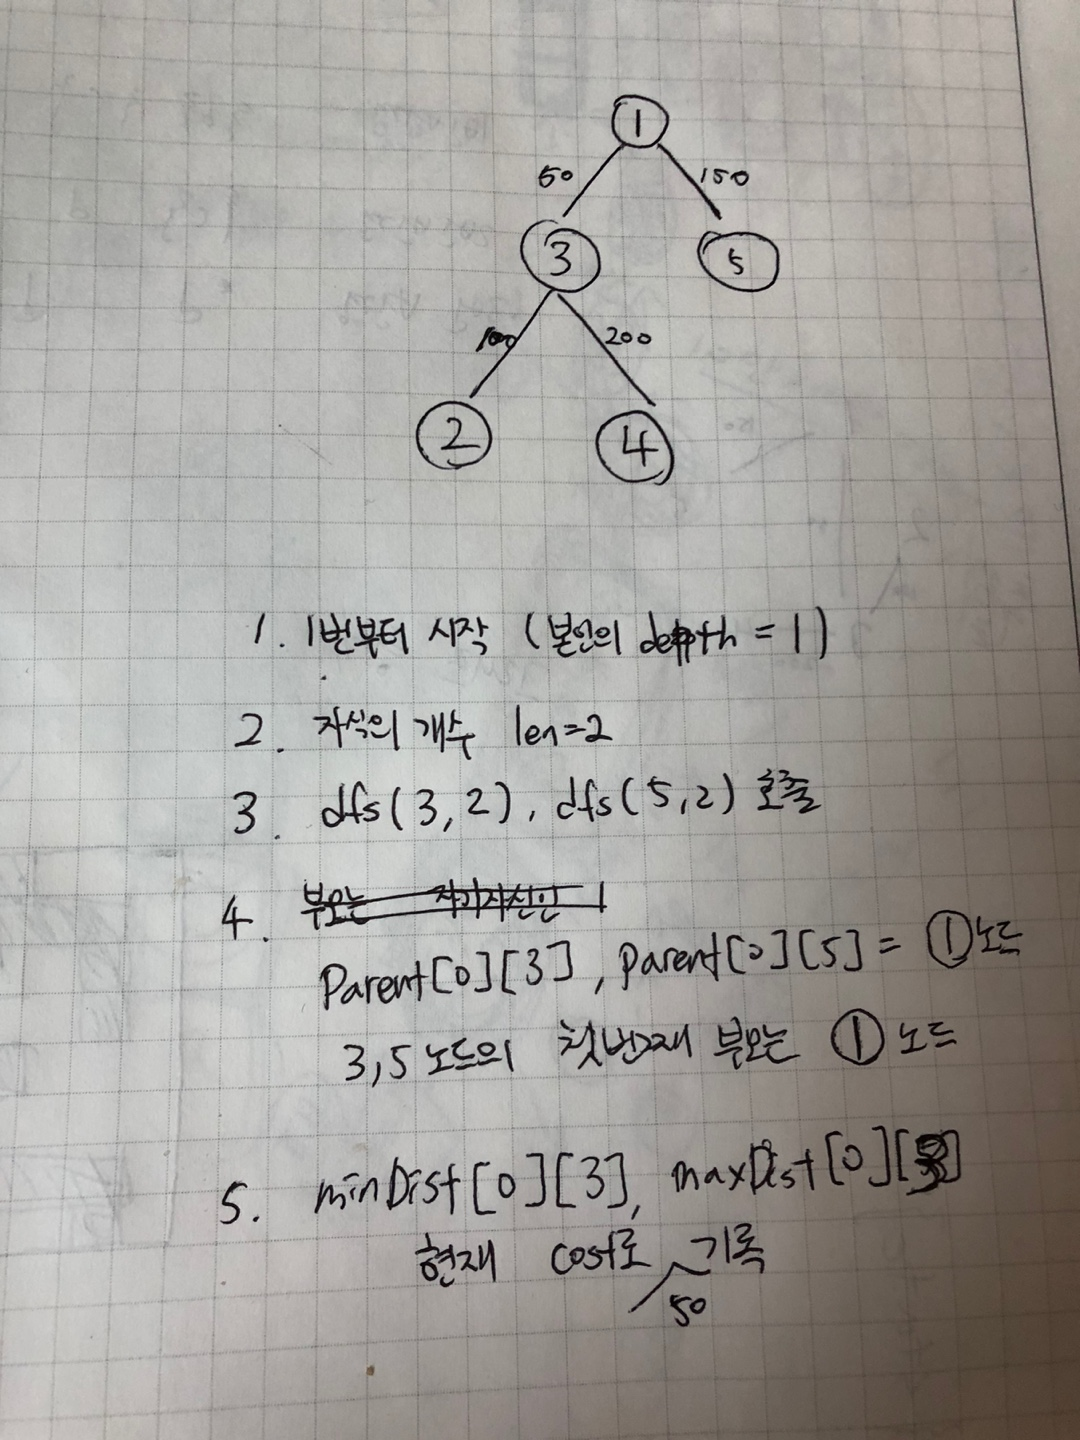 1
50 150
3 5
100 200
2 4
1. 1번부터 시작 (본인의 depth = 1)
2. 자식의 개수 len=2
3. dfs(3,2), dfs(5,2) 호출
4. 부모는 자기자신인 1
Parent[0][3], Parent[0][5] = ①노드
3,5 노드의 첫번째 부모는 ① 노드
5. minDist[0][3], maxDist[0][3]
현재 cost로 기록
50